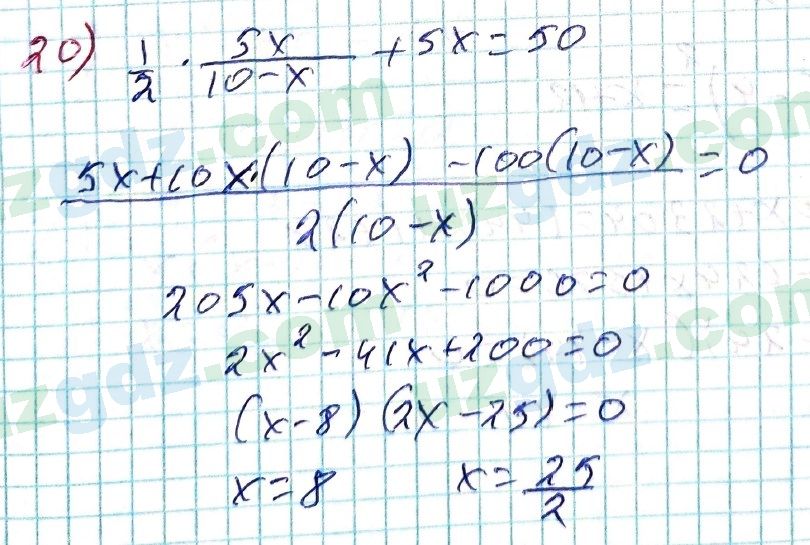 20) 1/2 · 5x/(10-x) + 5x = 50
(5x+10x·(10-x) -100(10-x))/(2(10-x)) = 0
205x-10x²-1000=0
2x²-41x+200=0
(x-8) (2x-25)=0
x=8 x=25/2
uzgdz.com